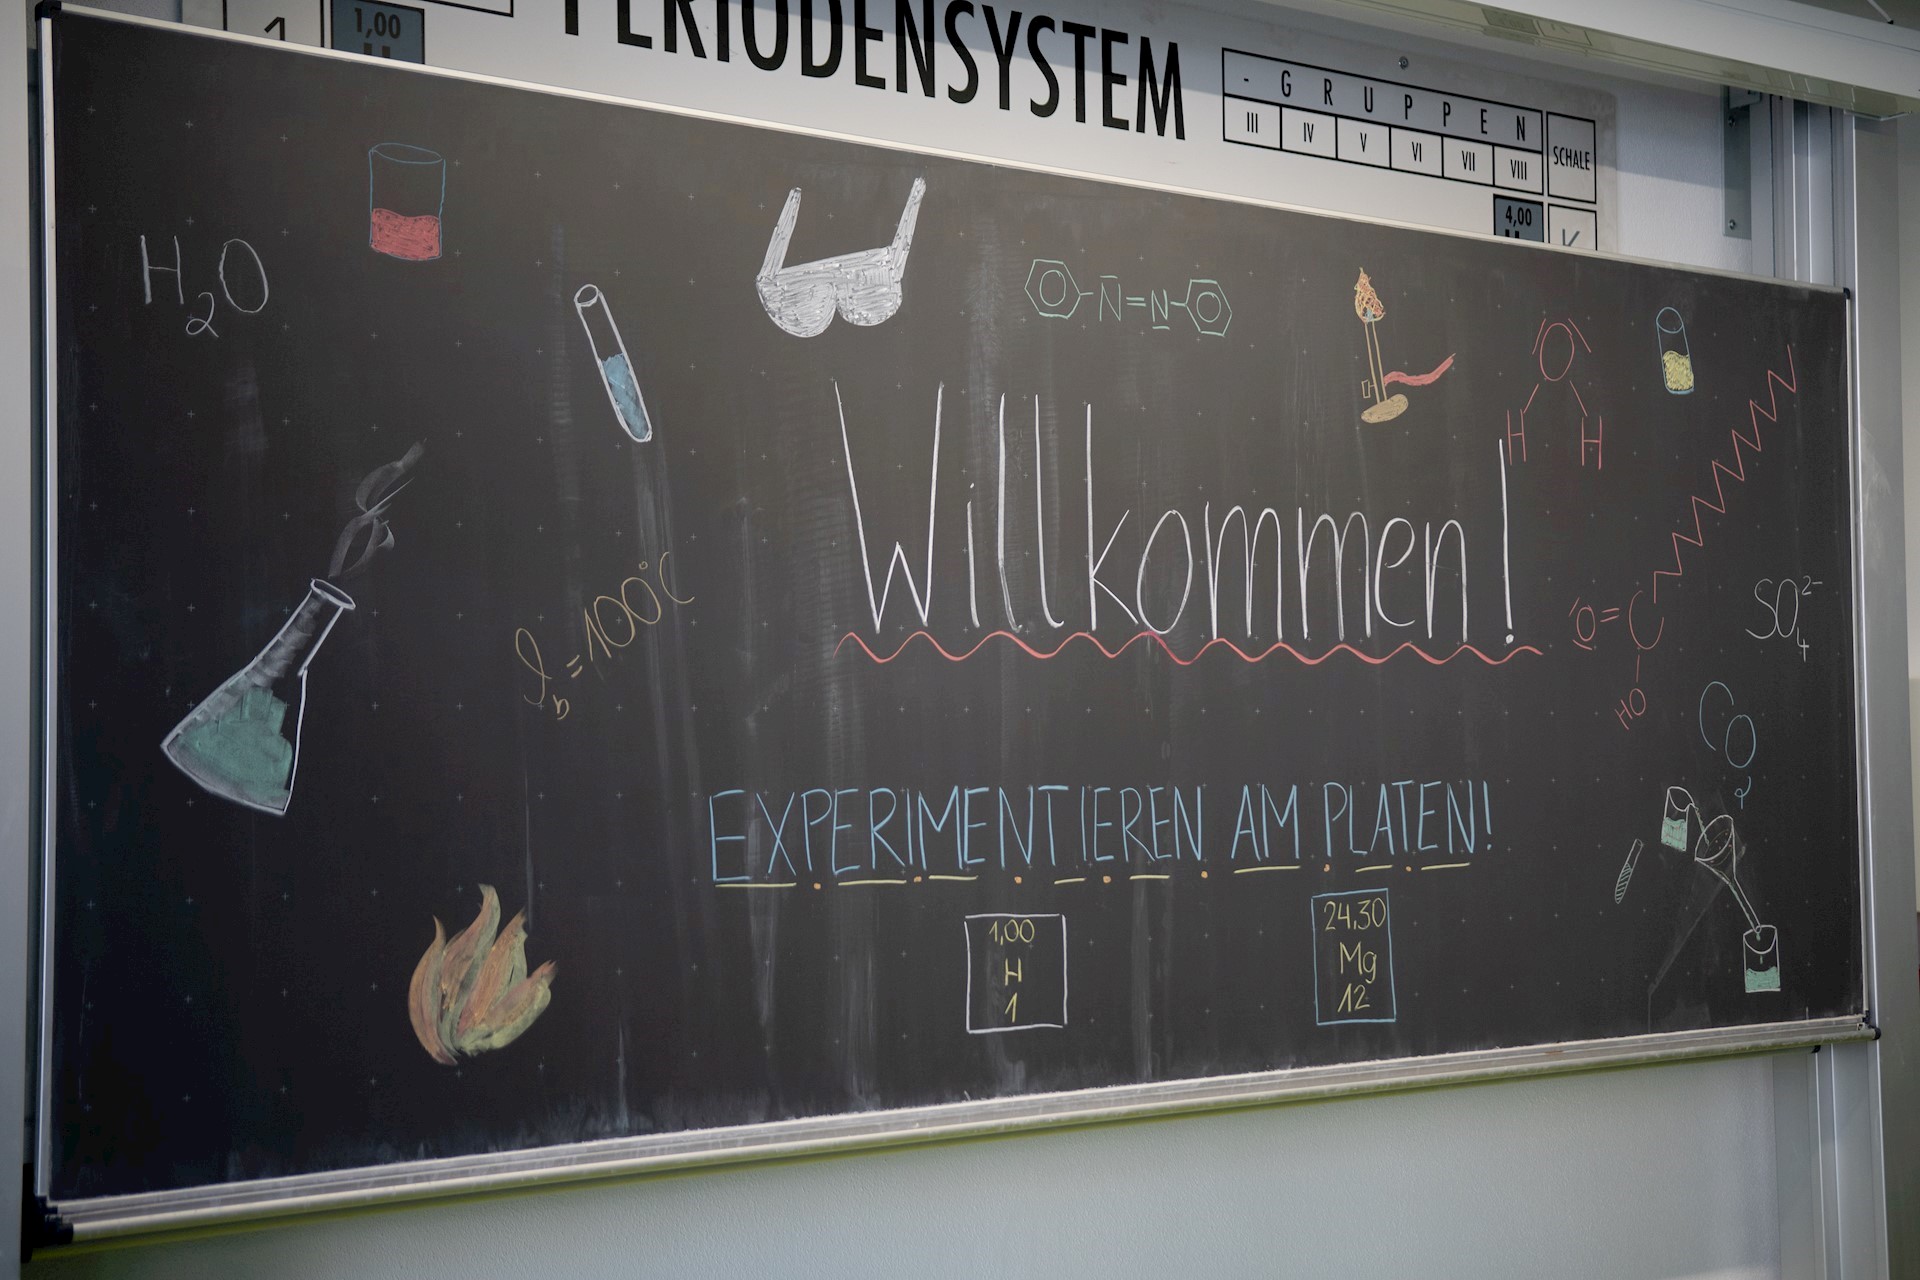 1
1,00
PERIODENSYSTEM
- GRUPPEN
III IV V VI VII VIII
SCHALE
4,00
K
H₂O
N=N
O
H H
Willkommen!
=100°C
O=C
HO
SO₄²⁻
CO₂
EXPERIMENTIEREN AM PLATEN!
1,00
H
1
24,30
Mg
12